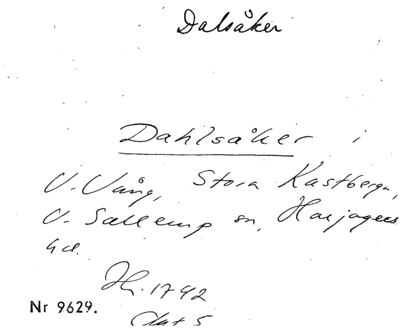 Dalsåker
Dahlsåker i
V. Vång, Stora Kastberga,
V. Sallerup sn, Harjagers
hd.
Hr. 1792
Nr 9629.